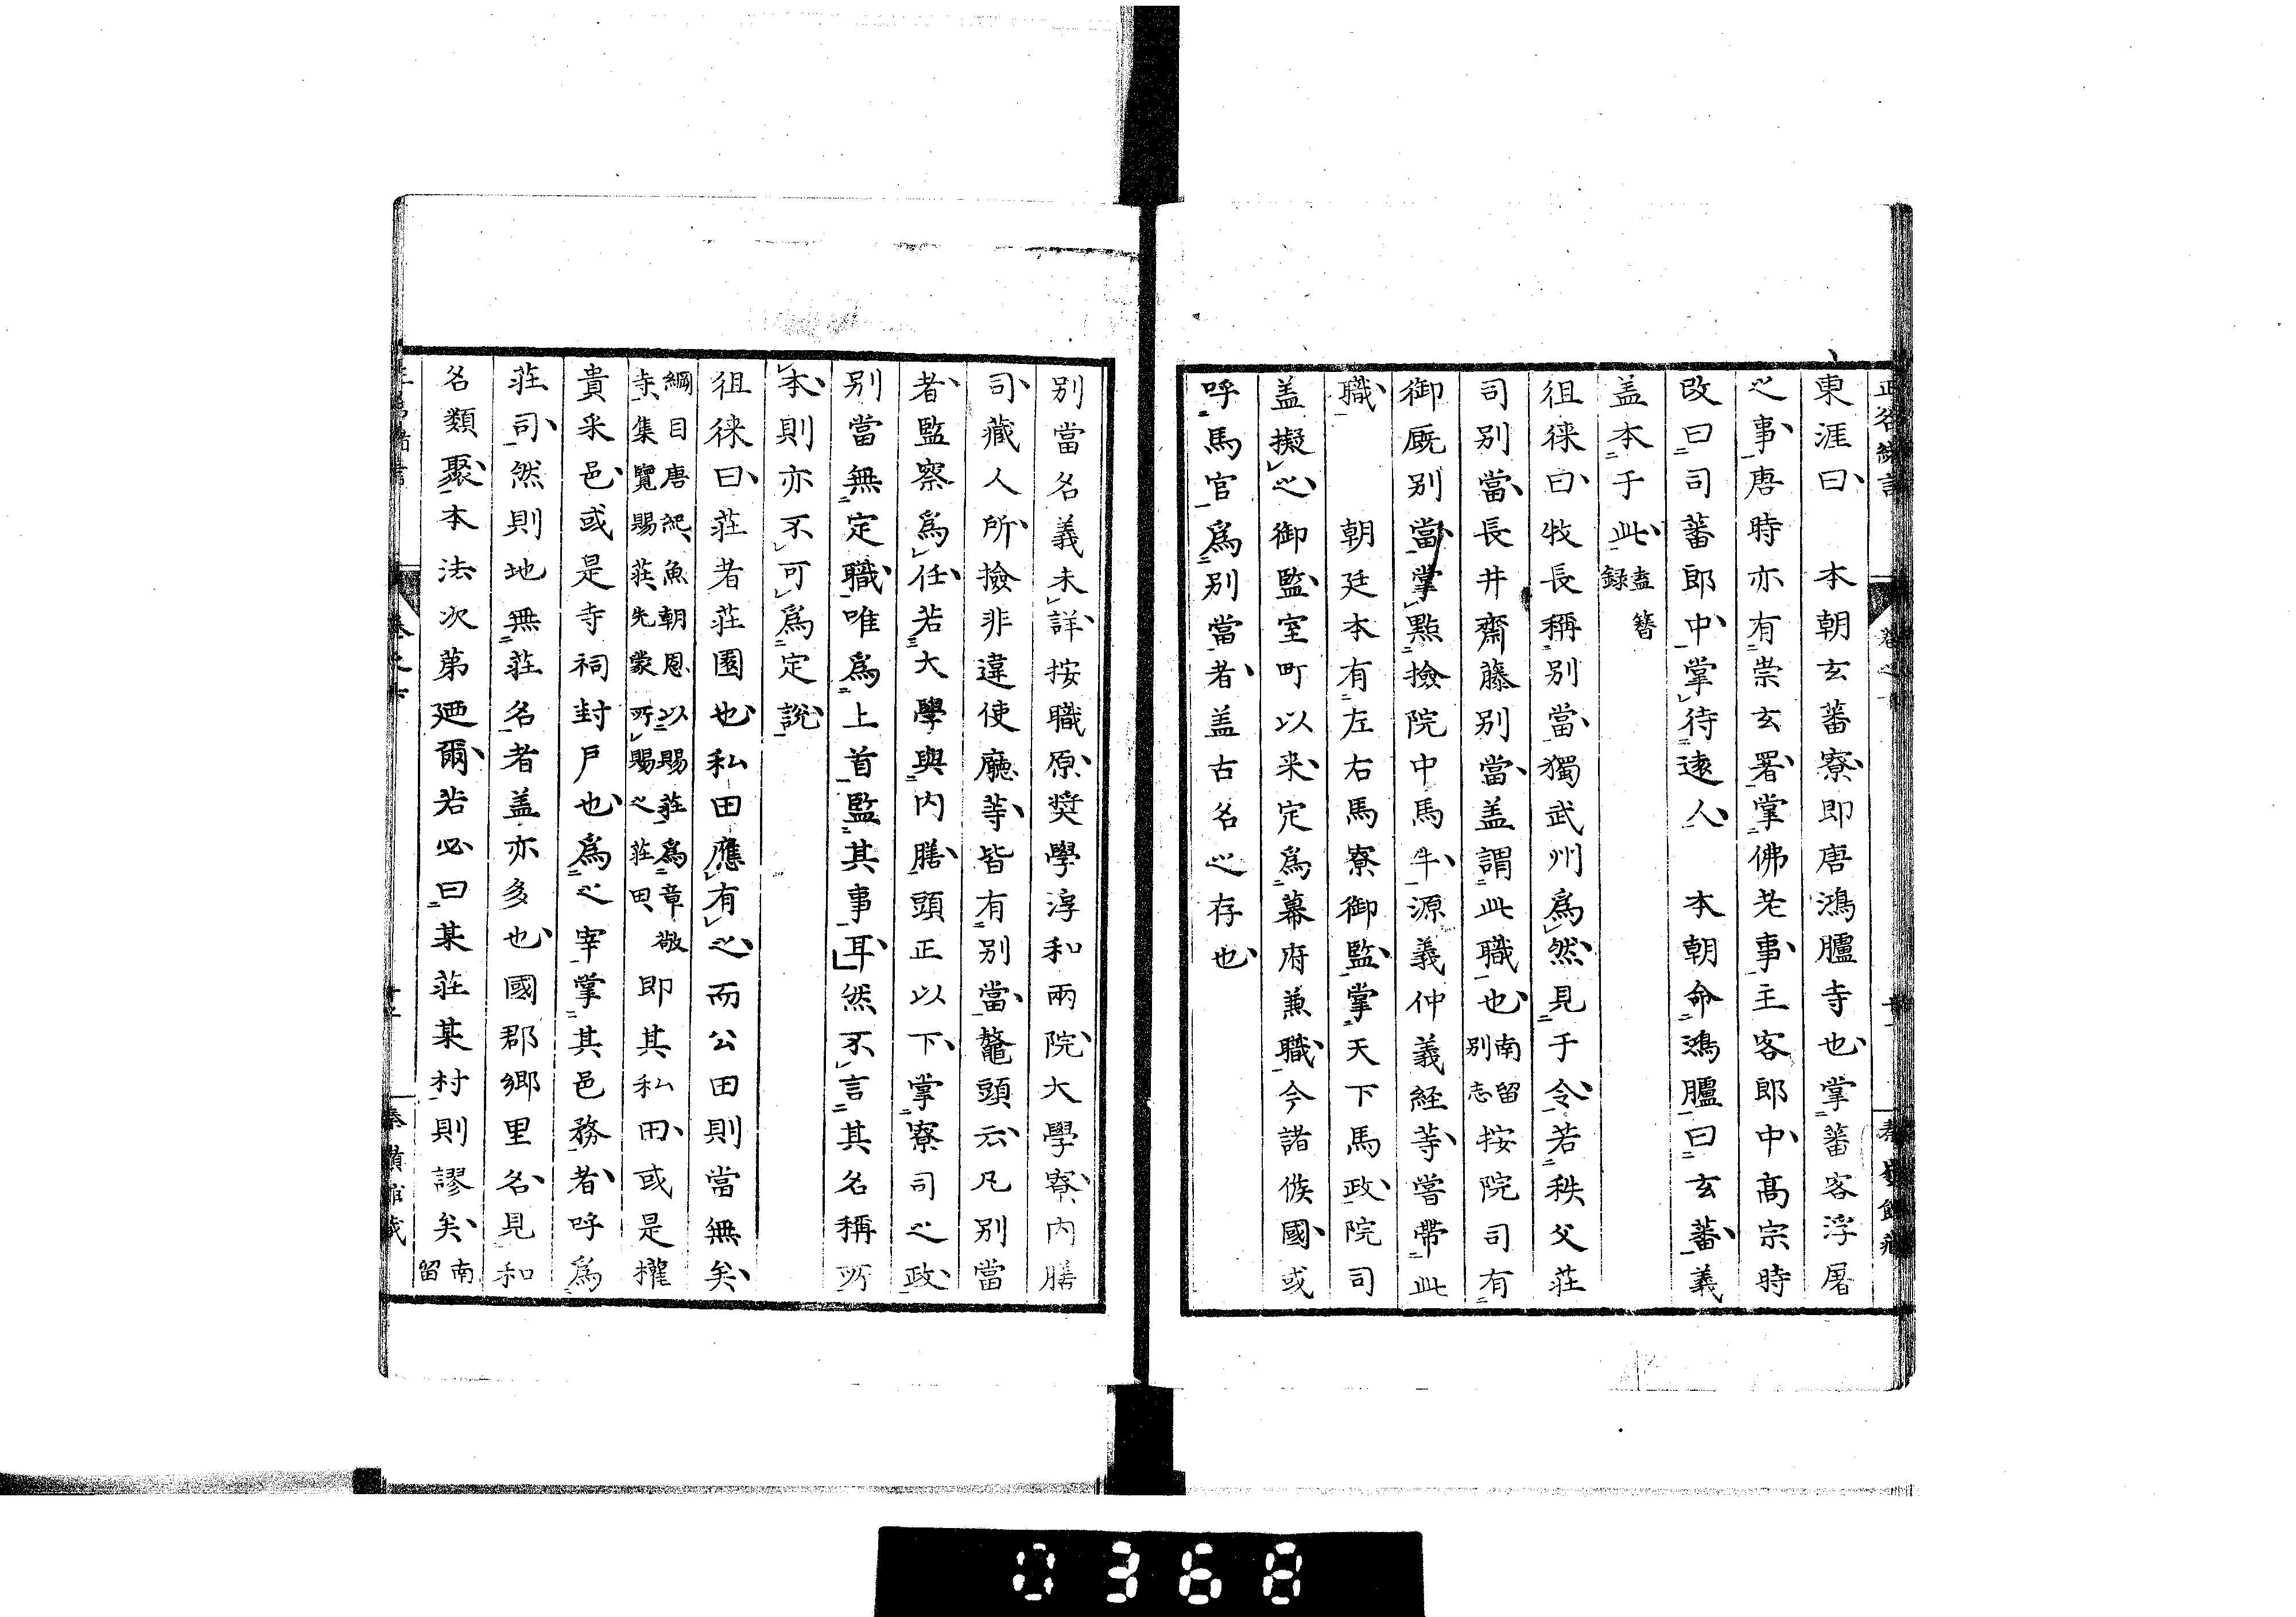 東涯曰　本朝玄蕃寮即唐鴻臚寺也掌蕃客浮屠
之事唐時亦有崇玄署掌佛老事主客郎中高宗時
改曰司蕃郎中掌待遠人　本朝命鴻臚曰玄蕃義
盖本于此盍簪録
徂徠曰牧長稱別當獨武州爲然見于令若秩父莊
司別當長井齋藤別當盖謂此職也南留別志按院司有
御厩別當掌點撿院中馬牛源義仲義経等嘗帶此
職　　朝廷本有左右馬寮御監掌天下馬政院司
盖擬之御監室町以来定爲幕府兼職今諸侯國或
呼馬官爲別當者盖古名之存也
別當名義未詳按職原奨學淳和兩院大學寮内膳
司藏人所撿非違使廳等皆有別當鼇頭云凡別當
者監察爲任若大學與内膳頭正以下掌寮司之政
別當無定職唯爲上首監其事耳然不言其名稱所
本則亦不可爲定說
徂徠曰莊者莊園也私田應有之而公田則當無矣
綱目唐紀魚朝恩以賜莊爲章敬
寺集覽賜莊先蒙所賜之莊田即其私田或是權
貴釆邑或是寺祠封戶也爲之宰掌其邑務者呼爲
莊司然則地無莊名者盖亦多也國郡鄉里名見和
名類聚本法次第廼爾若必曰某莊某村則謬矣南留
0368